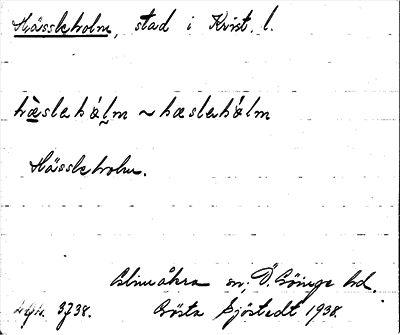 Hässleholm, stad i Krist. l.
hæ̀slehál̰m ~ hæslehálm
Hässleholm.
Glimåkra sn, Ö. Göinge hd.
3738. Gösta Sjöstedt 1938.